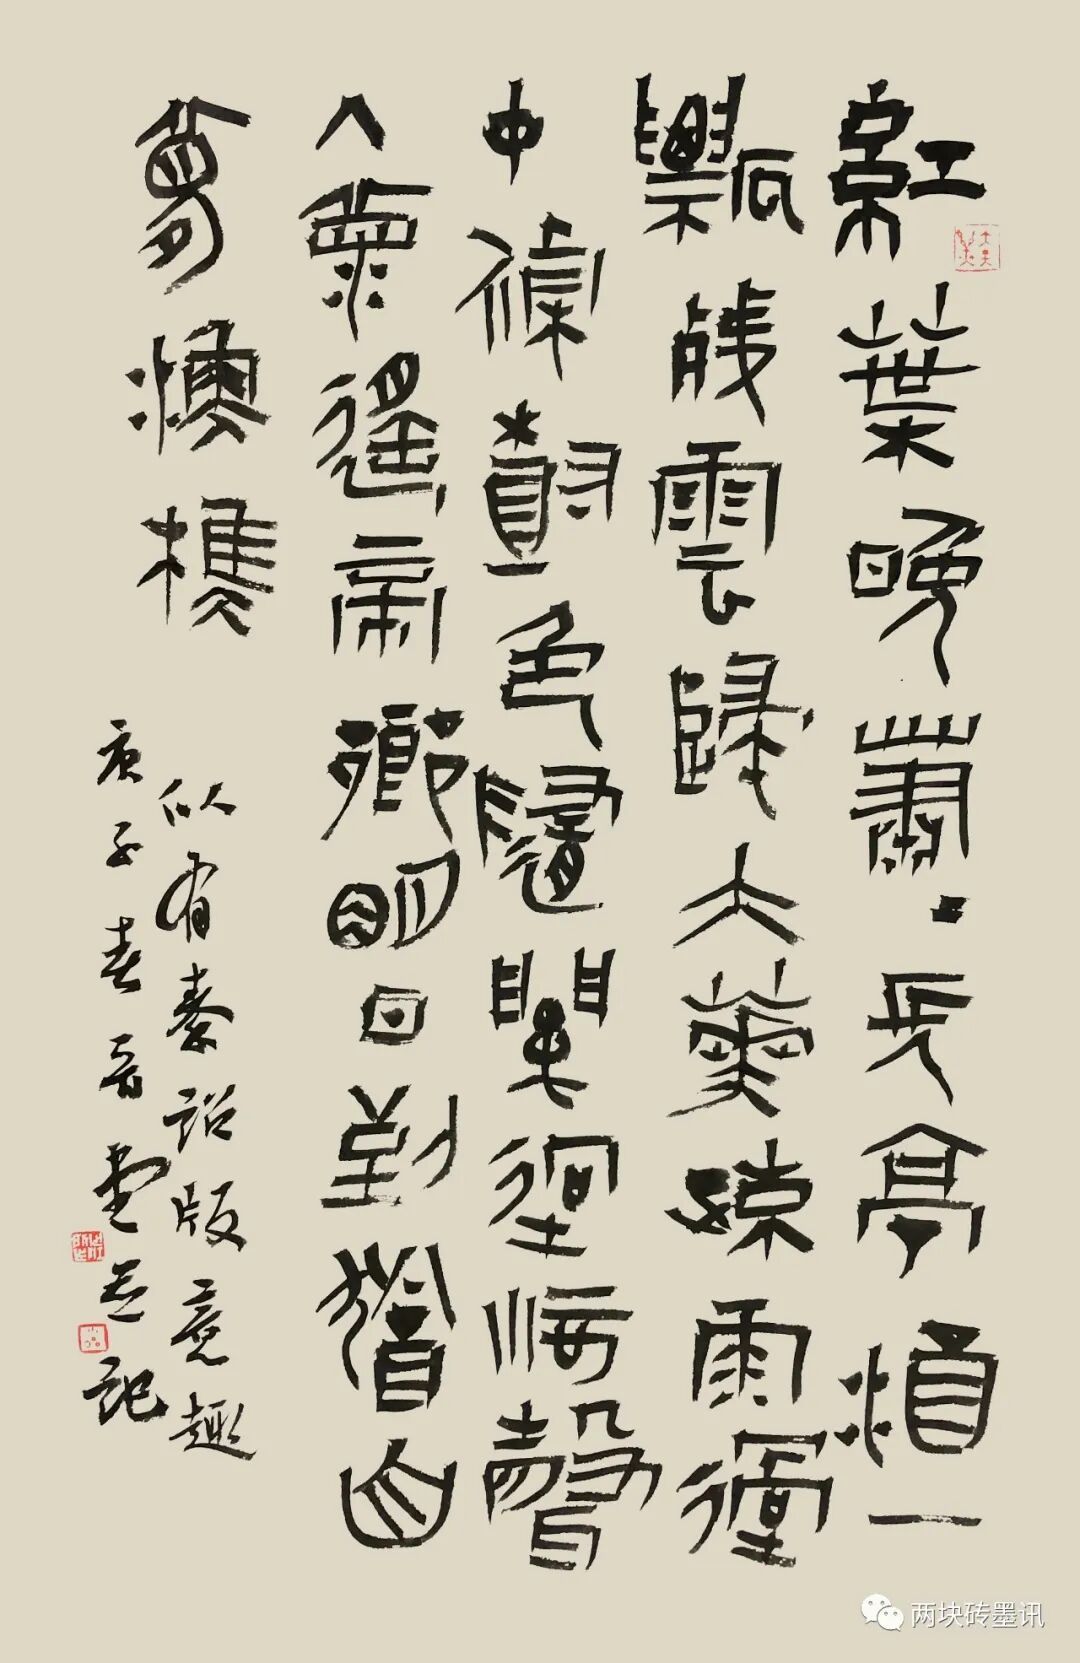 紅葉晚蕭〻長亭酒一
瓢殘雲歸太華疎雨過
中條樹色隨關迥河聲
入海遙帝鄉明日到猶自
夢漁樵
似有秦詔版意趣
庚子春堂並記
两块砖墨讯